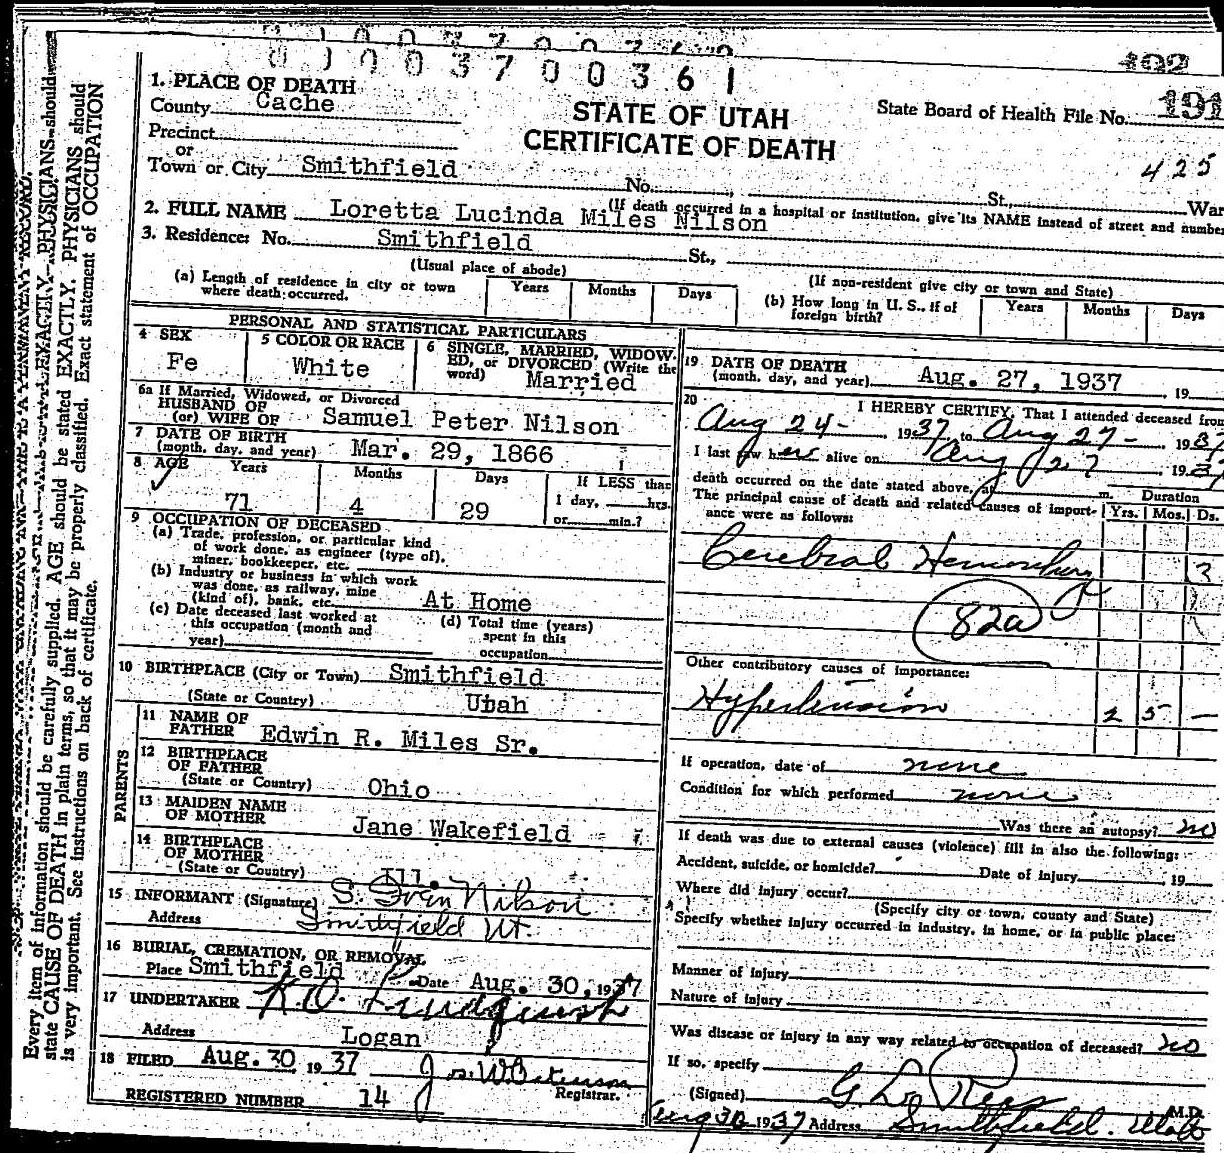 0 1 0 0 3 7 0 0 3 6 1
192
1. PLACE OF DEATH
County Cache
STATE OF UTAH
State Board of Health File No. 191
Precinct
CERTIFICATE OF DEATH
or
425
Town or City Smithfield No. St., War
(If death occurred in a hospital or institution, give its NAME instead of street and number
2. FULL NAME Loretta Lucinda Miles Nilson
3. Residence: No. Smithfield St.,
(Usual place of abode) (If non-resident give city or town and State)
(a) Length of residence in city or town where death occurred. Years Months Days
(b) How long in U. S., if of foreign birth? Years Months Days
PERSONAL AND STATISTICAL PARTICULARS
4 SEX Fe
5 COLOR OR RACE White
6 SINGLE, MARRIED, WIDOW-
ED, or DIVORCED (Write the
word) Married
6a If Married, Widowed, or Divorced
HUSBAND OF
(or) WIFE OF Samuel Peter Nilson
7 DATE OF BIRTH
(month, day, and year) Mar. 29, 1866
8 AGE Years Months Days If LESS than
71 4 29 1 day, hrs.
or min.?
9 OCCUPATION OF DECEASED
(a) Trade, profession, or particular kind
of work done, as engineer (type of),
miner, bookkeeper, etc.
(b) Industry or business in which work
was done, as railway, mine
(kind of), bank, etc. At Home
(c) Date deceased last worked at
this occupation (month and
year)
(d) Total time (years)
spent in this
occupation
10 BIRTHPLACE (City or Town) Smithfield
(State or Country) Utah
PARENTS
11 NAME OF
FATHER Edwin R. Miles Sr.
12 BIRTHPLACE
OF FATHER
(State or Country) Ohio
13 MAIDEN NAME
OF MOTHER Jane Wakefield
14 BIRTHPLACE
OF MOTHER
(State or Country) Ill.
15 INFORMANT (Signature) S. Nilson
Address Smithfield Ut.
16 BURIAL, CREMATION, OR REMOVAL
Place Smithfield Date Aug. 30, 1937
17 UNDERTAKER K.O. Lindquist
Address Logan
18 FILED Aug. 30 1937
Registrar.
REGISTERED NUMBER 14
19 DATE OF DEATH
(month, day, and year) Aug. 27, 1937 19
20 I HEREBY CERTIFY, That I attended deceased from
Aug 24 - , 1937 to Aug 27 - , 1937
I last saw her alive on Aug 27 , 1937
death occurred on the date stated above, at m. Duration
The principal cause of death and related causes of import-
ance were as follows: Yrs. Mos. Ds.
Cerebral Hemorrhage 3
82a
Other contributory causes of importance:
Hypertension 2 5 -
If operation, date of none
Condition for which performed none
Was there an autopsy? no
If death was due to external causes (violence) fill in also the following:
Accident, suicide, or homicide? Date of injury , 19
Where did injury occur?
(Specify city or town, county and State)
Specify whether injury occurred in industry, in home, or in public place:
Manner of injury
Nature of injury
Was disease or injury in any way related to occupation of deceased? no
If so, specify
(Signed) M.D.
Aug 30 1937 Address Smithfield. Utah
Every item of information should be carefully supplied. AGE should be stated EXACTLY. PHYSICIANS should
state CAUSE OF DEATH in plain terms, so that it may be properly classified. Exact statement of OCCUPATION
is very important. See instructions on back of certificate.